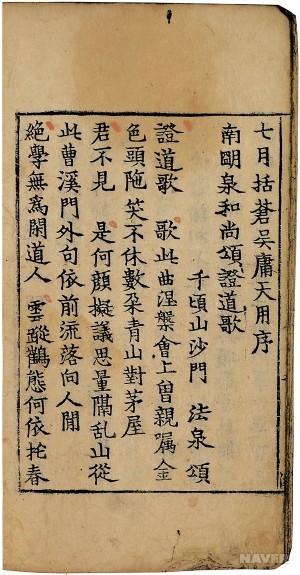 七月括蒼吳庸天用序
南明泉和尚頌證道歌
千頃山沙門 法泉 頌
證道歌 歌此曲涅槃會上曽親嘱金
色頭陁笑不休數朶青山對茅屋
君不見 是何顔擬議思量隔乱山從
此曹溪門外句依前流落向人間
絶學無爲閑道人 雲蹤鶴態何依托春
NAVER